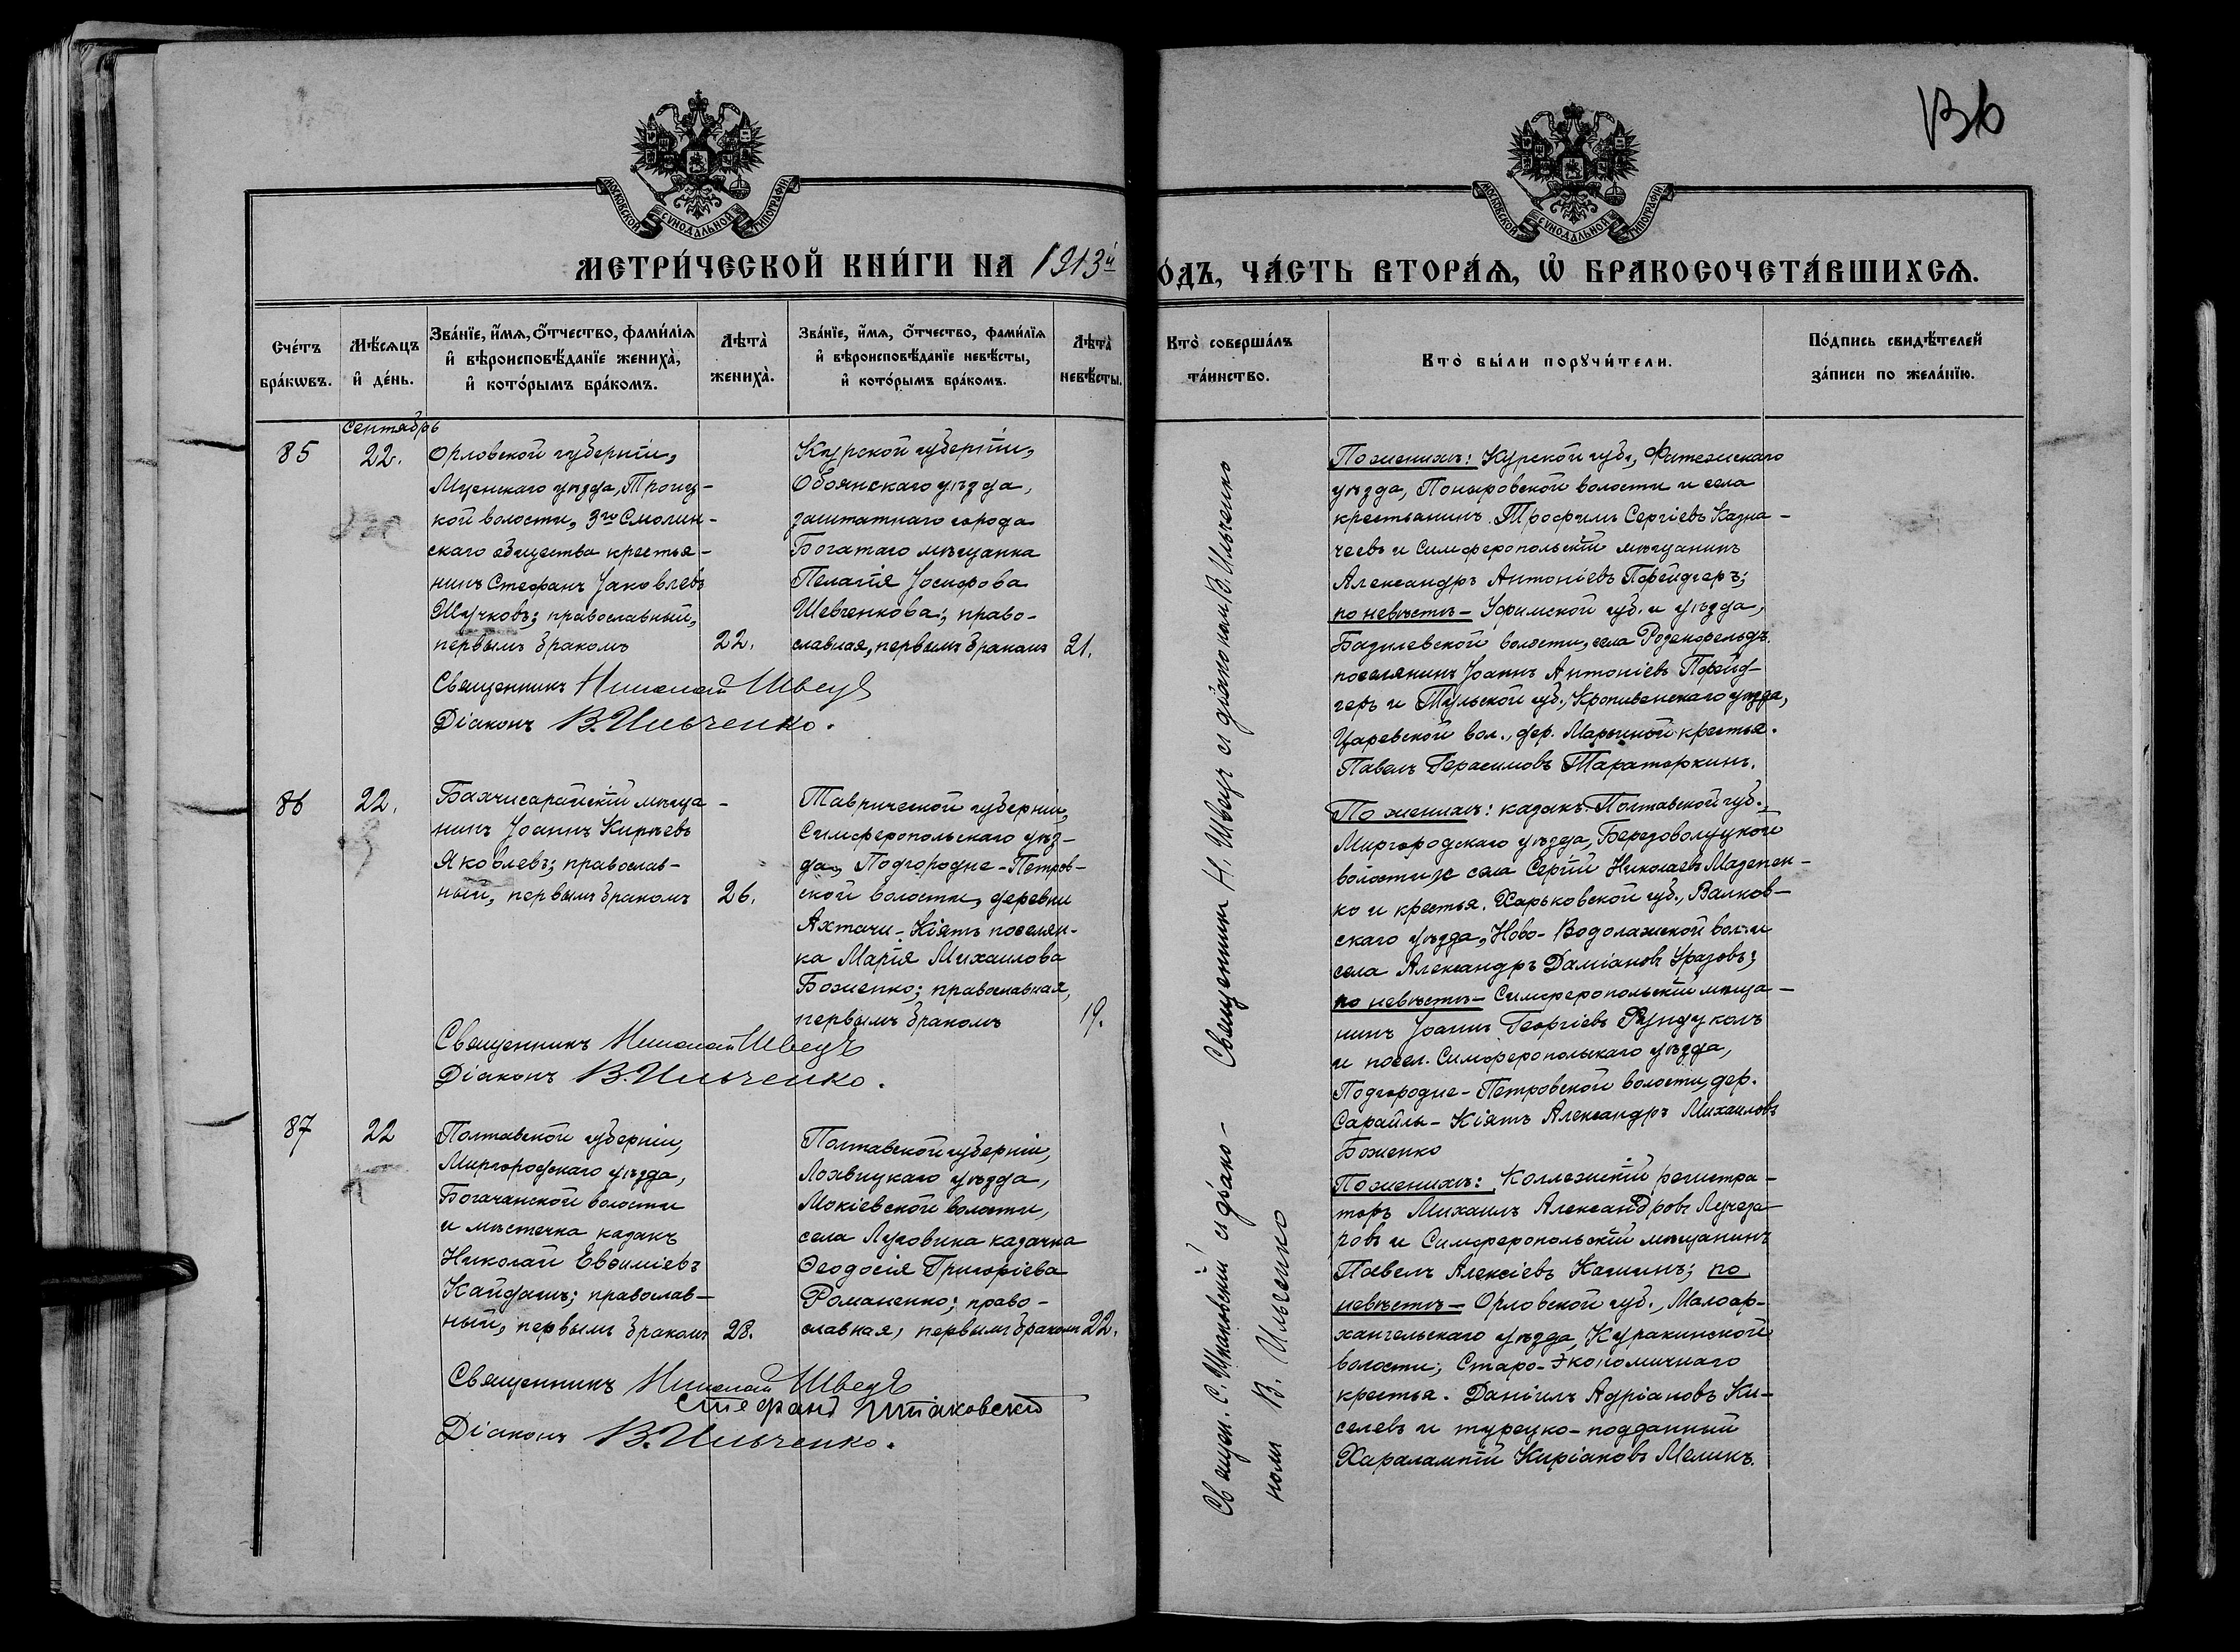 136
МОСКОВСКОЙ СУНОДАЛЬНОЙ ТИПОГРАФІИ
МОСКОВСКОЙ СУНОДАЛЬНОЙ ТИПОГРАФІИ
МЕТРИ́ЧЕСКОЙ КНИ́ГИ НА 1913й
О́ДЪ, ЧА́СТЬ ВТОРА́Ѧ, Ѡ҆ БРАКОСОЧЕТА́ВШИХСѦ.
Сче́тъ бра́кѡвъ.
Мѣ́сѧцъ и҆ де́нь.
Зва́нїе, и҆́мѧ, ѻ҆́тчество, фами́лїѧ
и҆ вѣроисповѣ́данїе жениха̀,
и҆ кото́рымъ бра́комъ.
Лѣта̀ жениха̀.
Зва́нїе, и҆́мѧ, ѻ҆́тчество, фами́лїѧ
и҆ вѣроисповѣ́данїе невѣ́сты,
и҆ кото́рымъ бра́комъ.
Лѣта̀ невѣ́сты.
Кто̀ соверша́лъ
та́инство.
Кто̀ бы́ли порꙋчи́тели.
По́дпись свидѣ́телей
за́писи по жела́нїю.
Сентябрь
85
22.
Орловской губерніи,
Мценскаго уѣзда, Троиц-
кой волости, 3го Смолин-
скаго общества крестья-
нинъ Стефанъ Іаковлевъ
Шучковъ; православный,
первымъ бракомъ
22.
Курской губерніи,
Обоянскаго уѣзда,
заштатнаго города
Богатаго мѣщанка
Пелагія Іосифова
Шевченкова; право-
славная, первымъ бракомъ
21.
Священникъ Николай Швецъ
Діаконъ В. Ильченко.
Священник Н. Швец и діаконом В. Ильченко
По женихѣ: Курской губ., Фатежскаго
уѣзда, Поныровской волости и села
крестьянинъ Трофимъ Сергіевъ Казна-
чеевъ и Симферопольскій мѣщанинъ
Александръ Антоніевъ Пфейдгеръ;
по невѣстѣ- Уфимской губ. и уѣзда,
Базилевской волости, села Розенфельдъ
поселянинъ Іоаннъ Антоніевъ Пфейд-
геръ и Тульской губ., Кропивенскаго уѣзда,
Царевской вол., дер. Марьиной крестья.
Павелъ Герасимовъ Тараторкинъ.
86
22.
Бахчисарайскій мѣща-
нинъ Іоаннъ Кирѣевъ
Яковлевъ; православ-
ный, первымъ бракомъ
26.
Таврической губерніи,
Симферопольскаго уѣз-
да, Подгородне-Петров-
ской волости, деревни
Ахтачи-Кіятъ поселян-
ка Марія Михаилова
Боженко; православная,
первымъ бракомъ
19.
Священникъ Николай Швецъ
Діаконъ В. Ильченко.
По женихѣ: казакъ Полтавской губ.,
Миргородскаго уѣзда, Березоволуцкой
волости и села Сергій Николаевъ Мазепен-
ко и крестья. Харьковской губ., Валков-
скаго уѣзда, Ново-Водолажской вол. и
села Александръ Даміановъ Уразовъ;
по невѣстѣ- Симферопольскій мѣща-
нинъ Іоаннъ Георгіевъ Рундуколъ
и посел. Симферопольскаго уѣзда,
Подгородне-Петровской волости, дер.
Сарайлы-Кіятъ Александръ Михаиловъ
Боженко
87
22
Полтавской губерніи,
Миргородскаго уѣзда,
Богачанской волости
и мѣстечка казакъ
Николай Евѳиміевъ
Кайдашъ; православ-
ный, первымъ бракомъ
28.
Полтавской губерніи,
Лохвицкаго уѣзда,
Мокіевской волости,
села Луговика казачка
Ѳеодосія Григоріева
Романенко; право-
славная, первымъ бракомъ
22.
Священникъ Николай Швецъ
Стефанъ Шпаковскій
Діаконъ В. Ильченко.
Священ. С. Шпаковскій и діако-
ном В. Ильченко
По женихѣ: Коллежскій регистра-
торъ Михаилъ Александровъ Лучеза-
ровъ и Симферопольскій мѣщанинъ
Павелъ Алексіевъ Кашинъ; по
невѣстѣ- Орловской губ., Малоар-
хангельскаго уѣзда, Куракинской
волости, Старо-Экономичнаго
крестья. Даніилъ Адріановъ Ки-
селевъ и турецко-подданный
Харалампій Киріаковъ Меликъ.